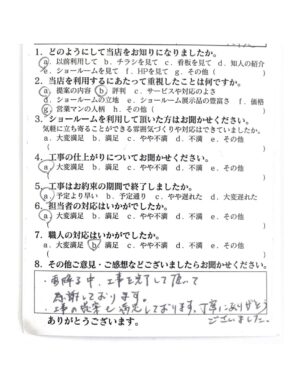 1. どのようにして当店をお知りになりましたか。
a. 以前利用して b. チラシを見て c. 看板を見て d. 知人の紹介
e. ショールームを見て f. HPを見て g. その他 (
)
2. 当店を利用するにあたって重視したことは何ですか。
a. 提案の内容 b. 評判 c. サービスや対応のよさ
d. ショールームの立地 e. ショールーム展示品の豊富さ f. 価格
g. 営業マンの人柄 h. その他 (
)
3. ショールームを利用して頂いた方はお聞かせください。
気軽に立ち寄ることができる雰囲気づくりや対応はできていましたか。
a. 大変満足 b. 満足 c. やや不満 d. 不満 e. その他
( )
4. 工事の仕上がりについてお聞かせください。
a. 大変満足 b. 満足 c. やや不満 d. 不満 e. その他
( )
5. 工事はお約束の期間で終了しましたか。
a. 予定より早い b. 予定通り c. やや遅れた d. 大変遅れた
6. 担当者の対応はいかがでしたか。
a. 大変満足 b. 満足 c. やや不満 d. 不満 e. その他
( )
7. 職人の対応はいかがでしたか。
a. 大変満足 b. 満足 c. やや不満 d. 不満 e. その他
( )
8. その他ご意見・ご感想などございましたらお聞かせください。
・雨降る中、工事を完了して頂いて
感謝しております。
・工事の提案も満足しております。丁寧にありがとう
ございました。
ありがとうございます。